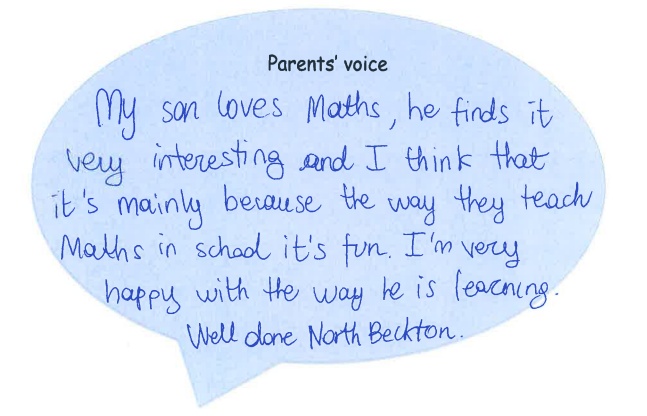 Parents' voice
My son loves Maths, he finds it
very interesting and I think that
it's mainly because the way they teach
Maths in school it's fun. I'm very
happy with the way he is learning.
Well done North Beckton.